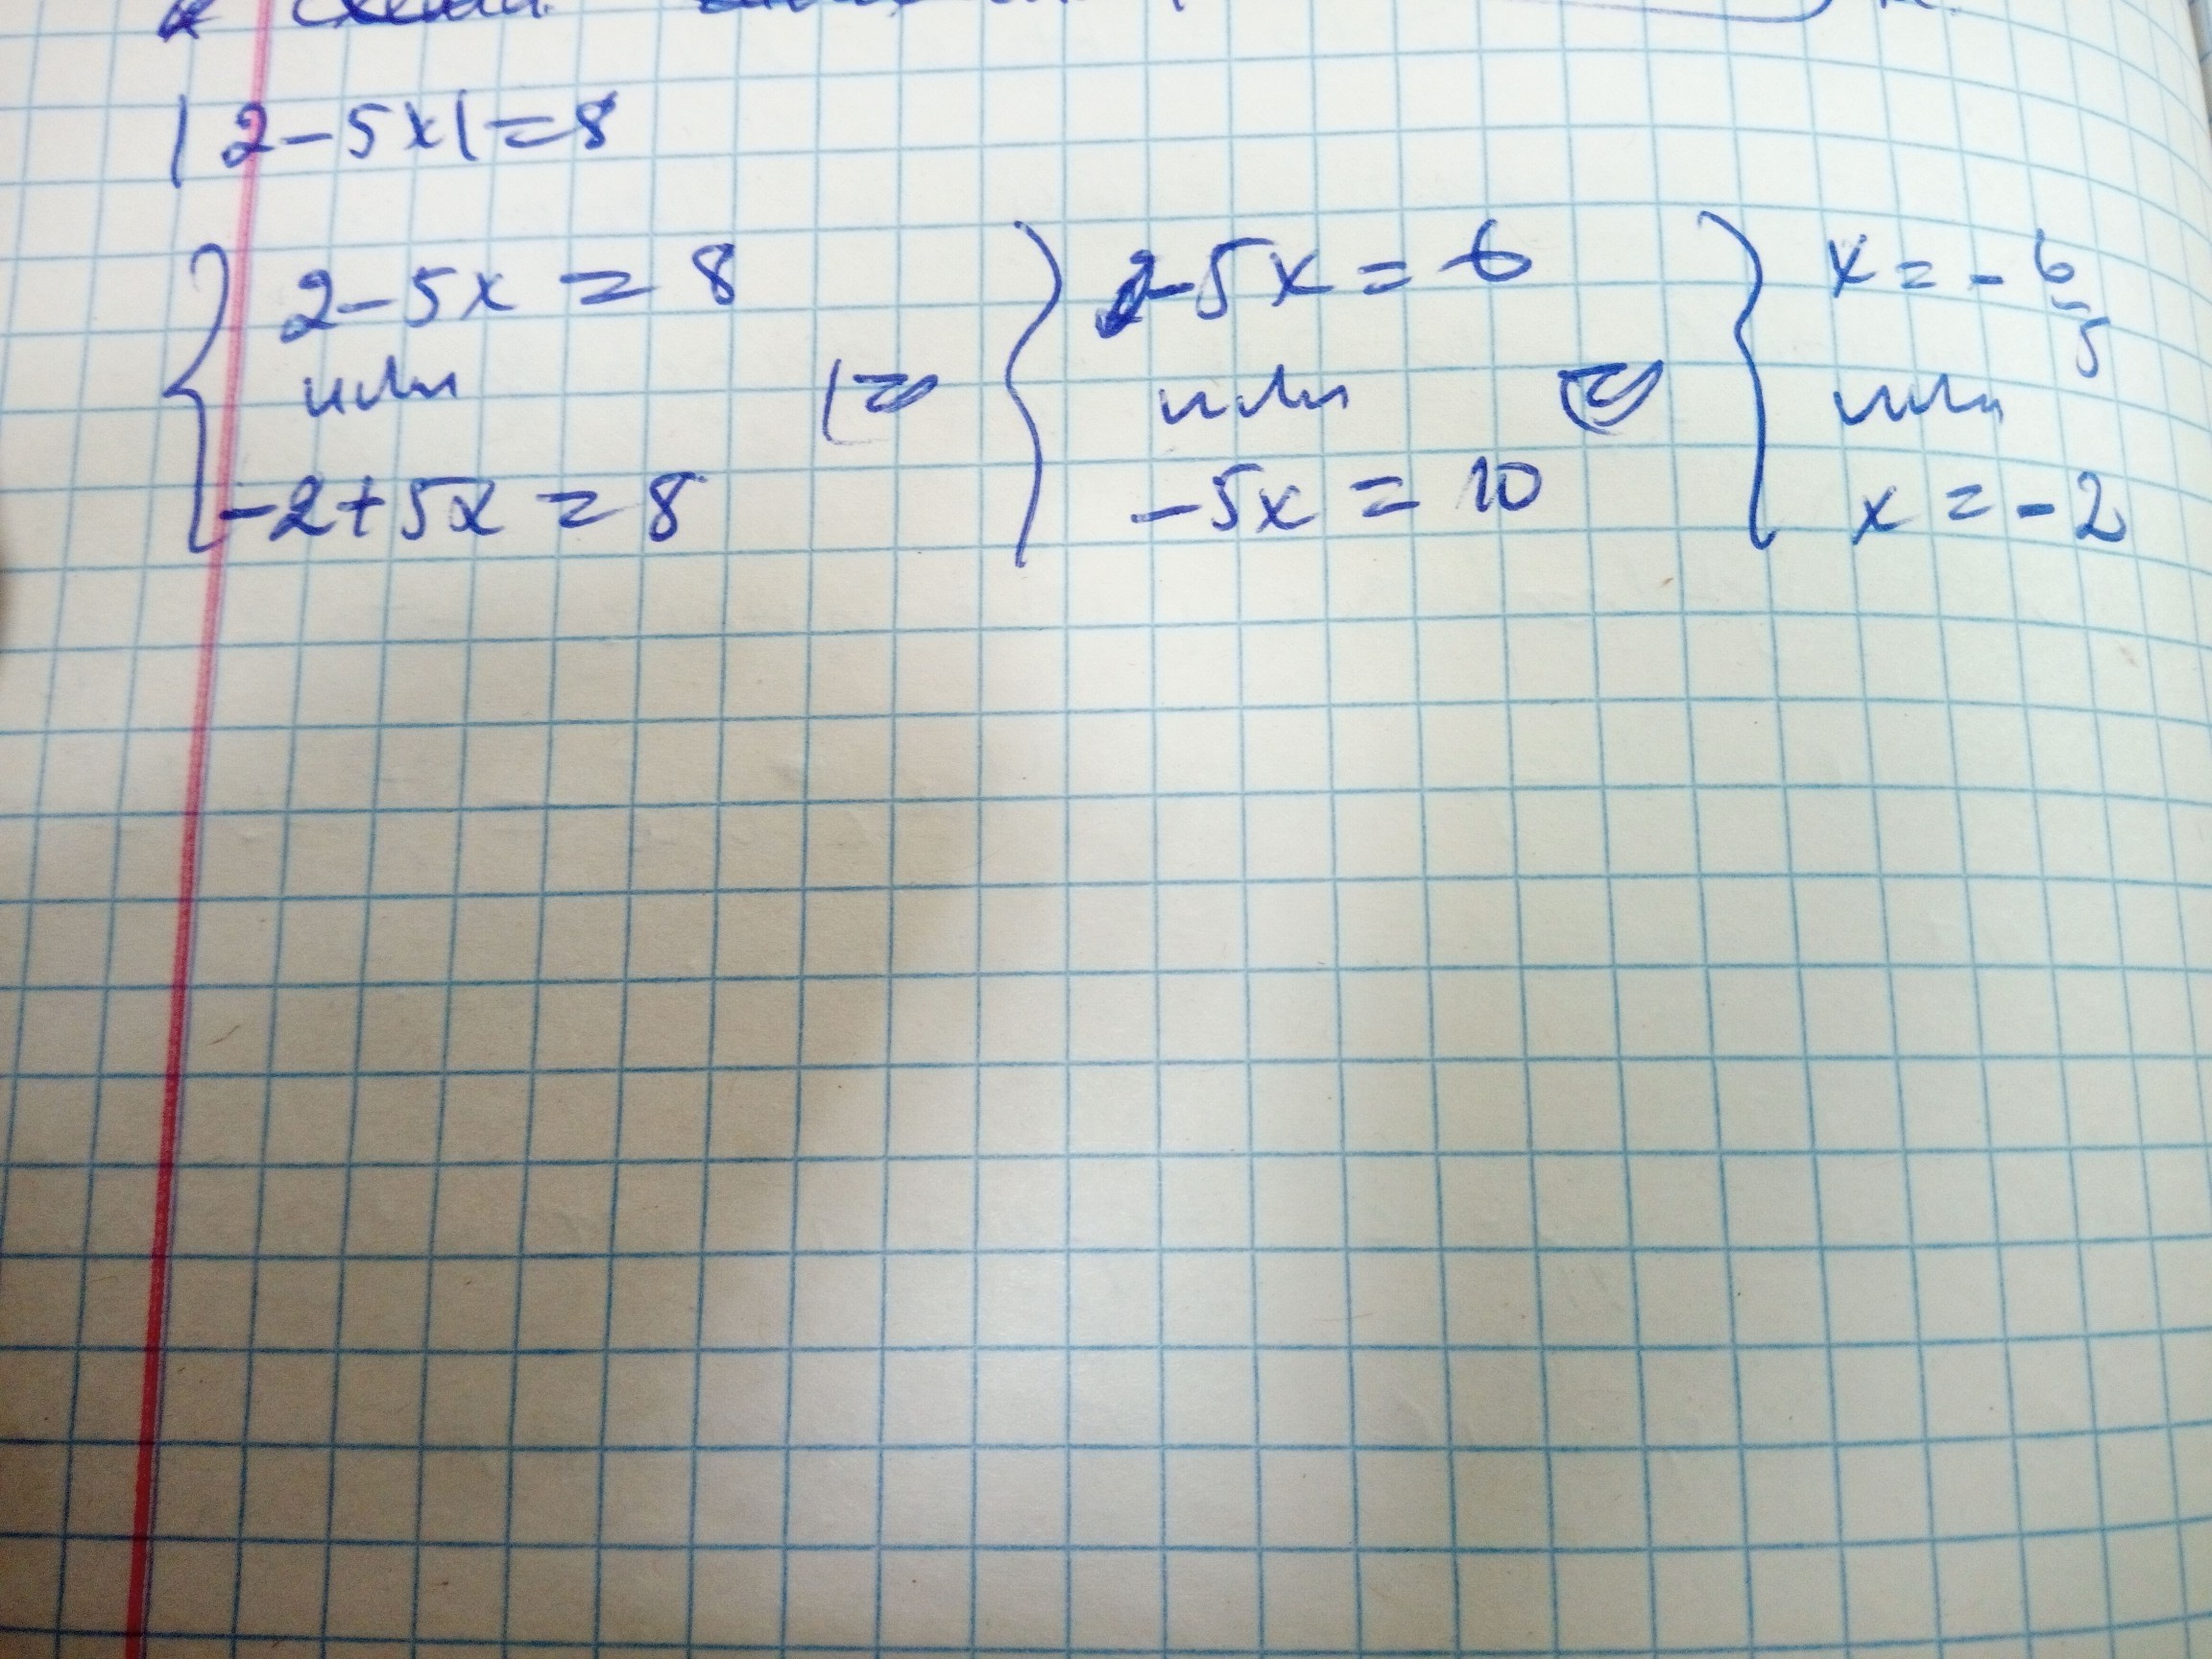 |2-5x|=8
2-5x = 8 2-5x = 6 x = -6/5
или или или
-2+5x = 8 -5x = 10 x = -2